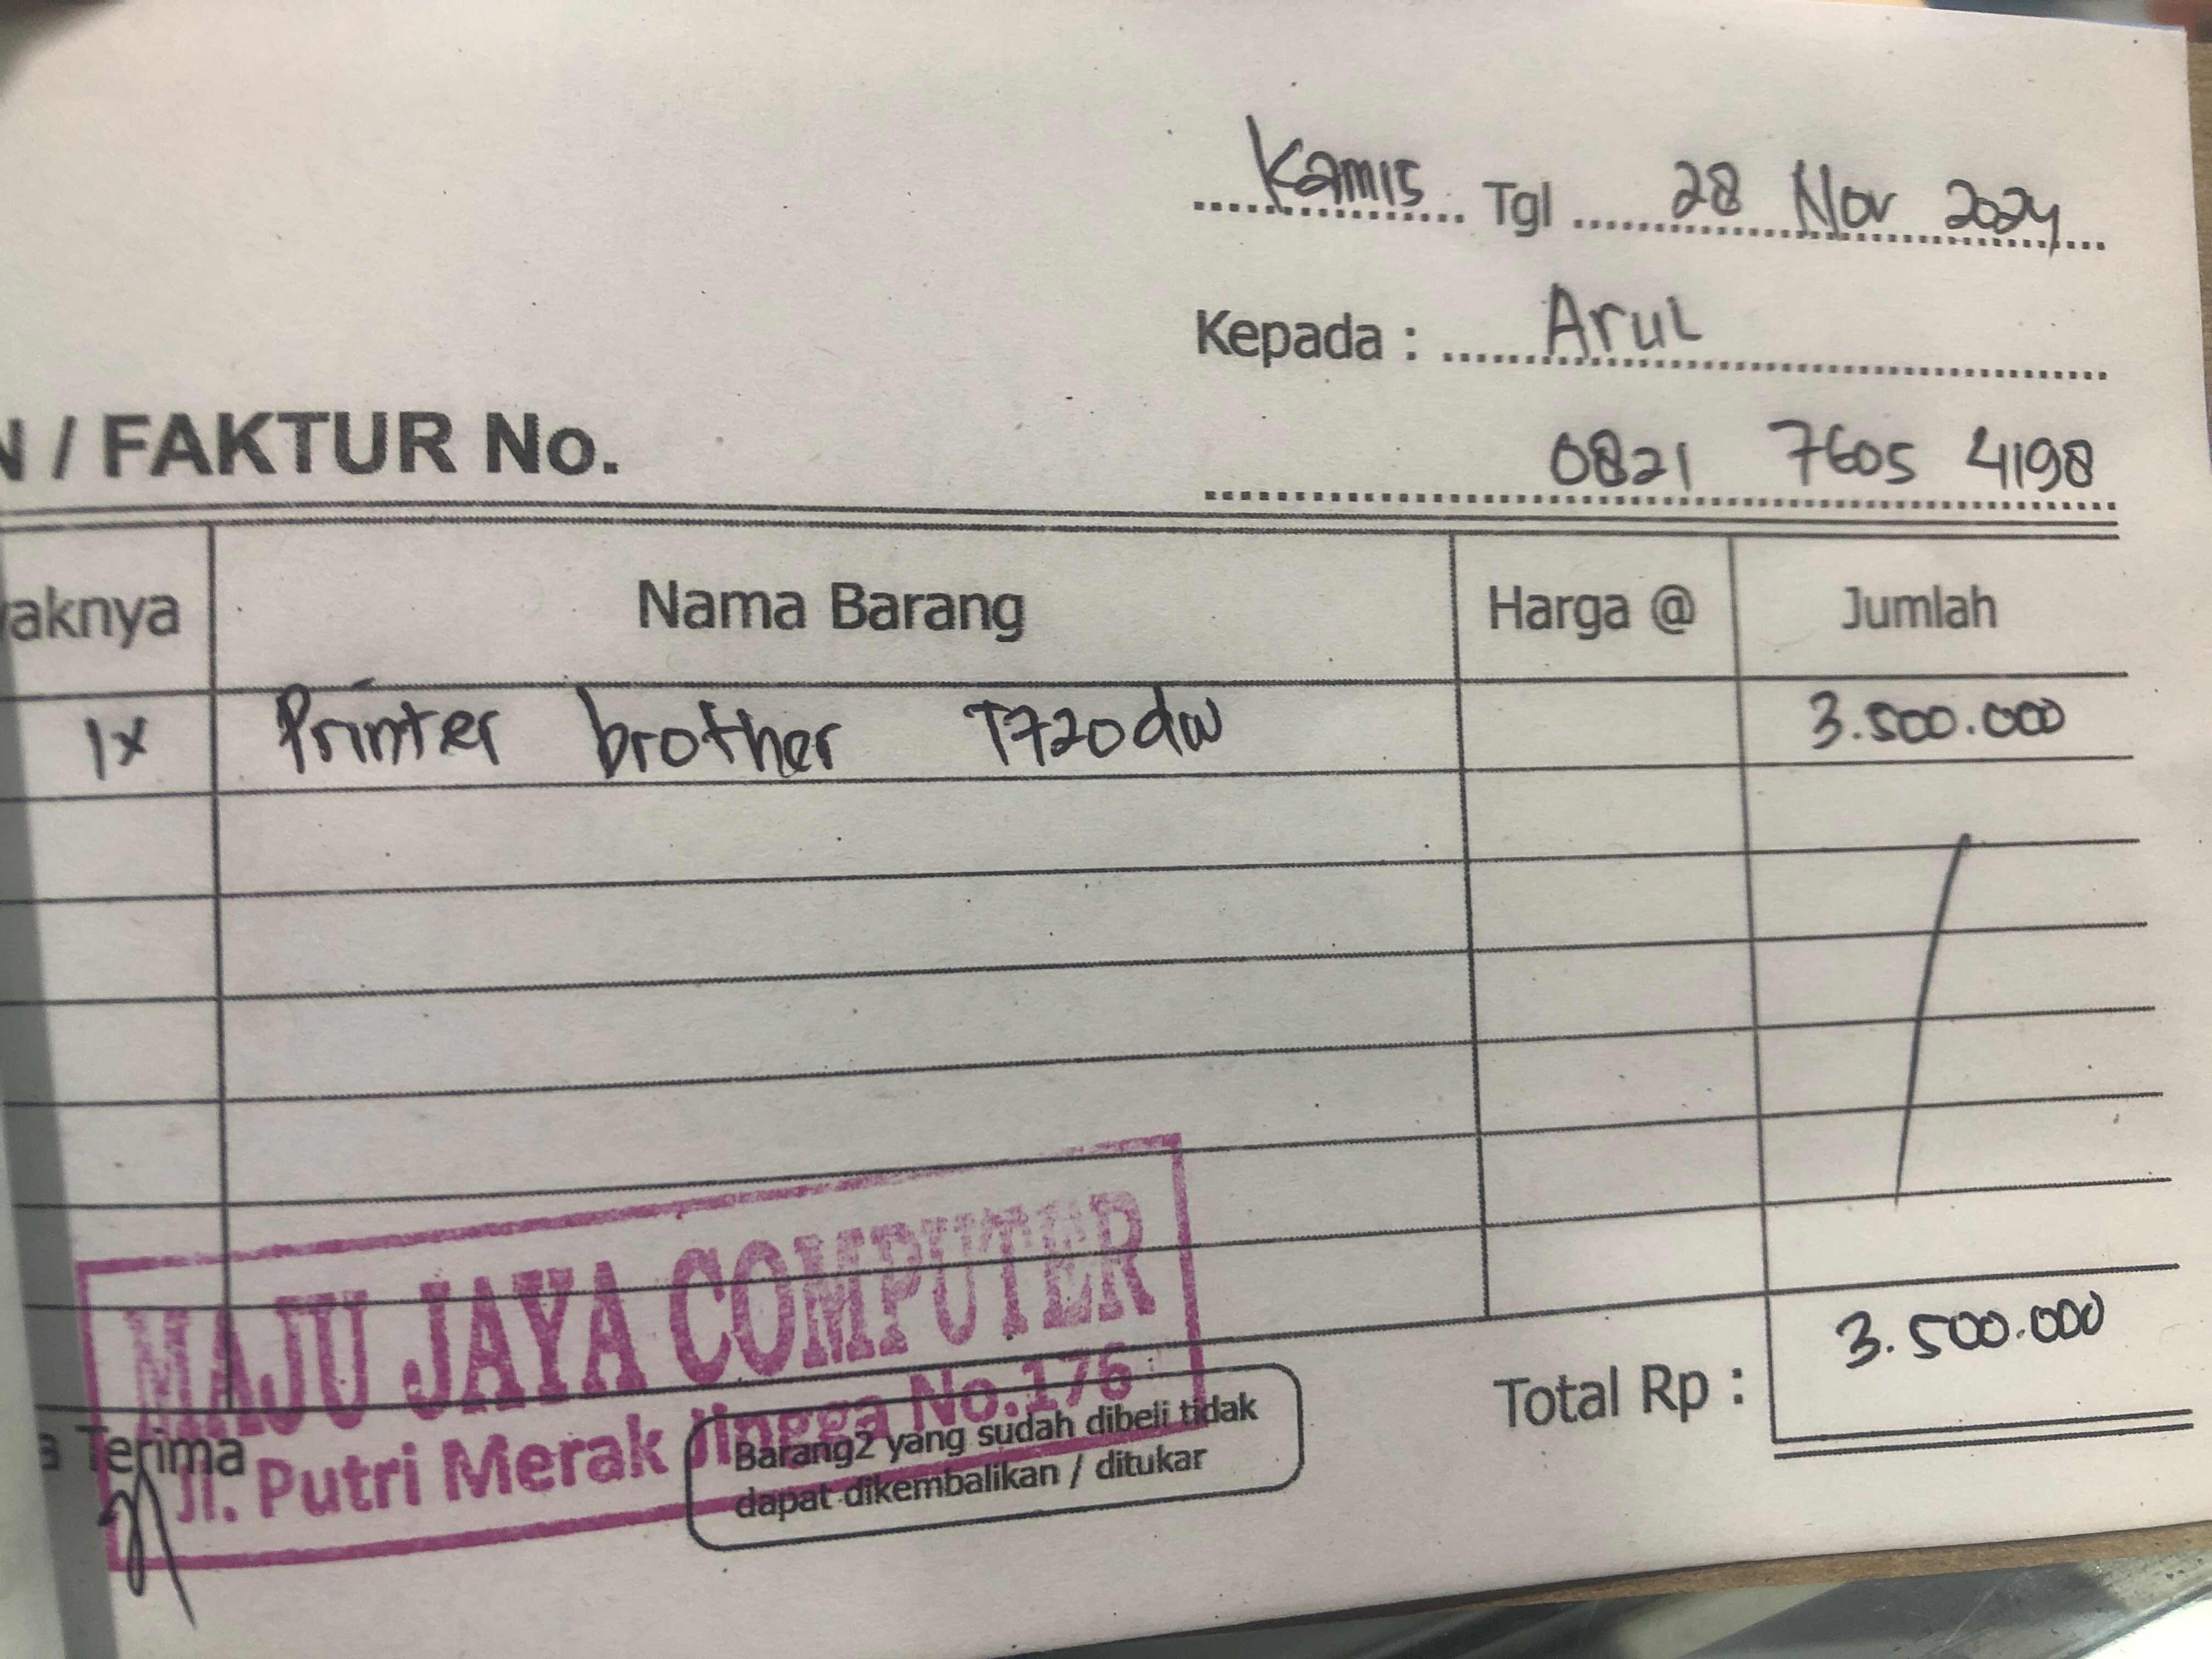 Kamis Tgl 28 Nov 2024
Kepada : Arul
0821 7605 4198
N / FAKTUR No.
aknya Nama Barang Harga @ Jumlah
1x Printer brother T720dw 3.500.000
MAJU JAYA COMPUTER
Jl. Putri Merak Jingga No.176
Total Rp : 3.500.000
a Terima
Barang2 yang sudah dibeli tidak
dapat dikembalikan / ditukar